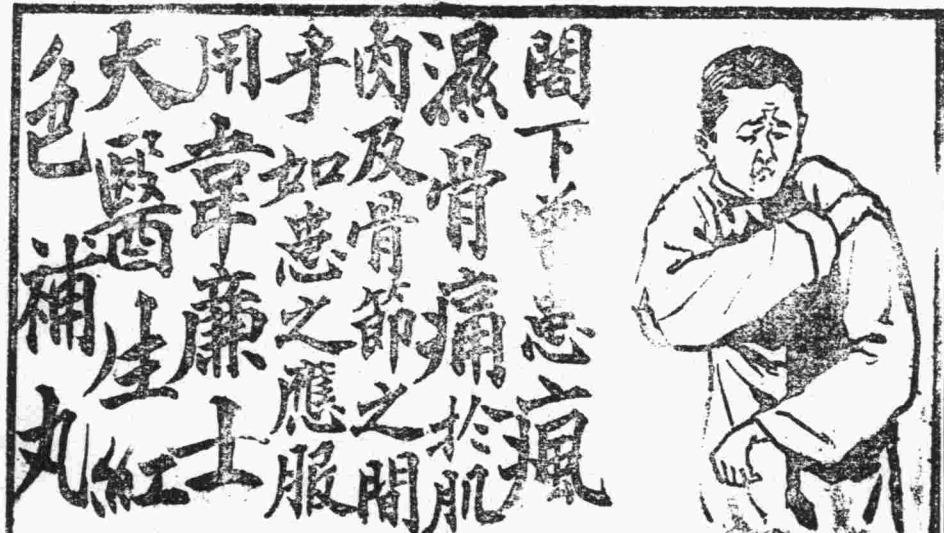 閣下患瘋
濕骨痛於肌
肉及骨節之間
乎如患之應服
用韋廉士
大醫生紅
色補丸